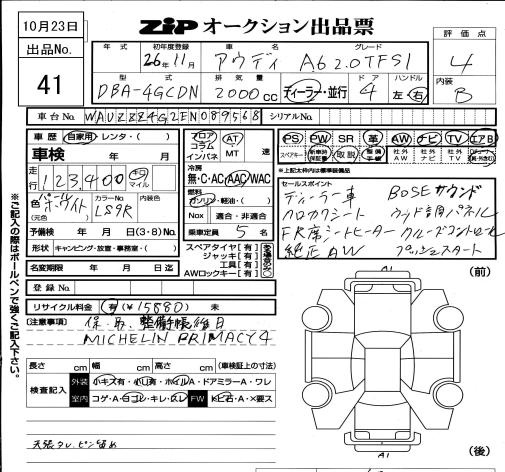 10月23日
ZIP オークション出品票
評価点
4
出品No.
41
年式 初年度登録 車名 グレード
26年11月 アウディ A6 2.0TFSI
内装
B
型式 排気量 ドア ハンドル
DBA-4GCDN 2000cc ディーラー・並行 4 左 右
車台No. WAUZZZ4G2EN089568 シリアルNo.
車歴 自家用・レンタ・( )
車検 年 月
走行 123,400 km マイル
色 パールホワイト (元色) カラーNo. LS9R 内装色
予備検 年 月 日(3・8)No.
形状 キャンピング・放置・事務室・( )
名変期限 年 月 日迄
登録No.
リサイクル料金 有(¥15880) 未
フロア コラム インパネ AT MT 速
冷房 無・C・AC・AAC/WAC
燃料 ガソリン・軽油・( )
Nox 適合・非適合
乗車定員 5 名
スペアタイヤ[有]
ジャッキ[有]
工具[有]
AWロックキー[有]
PS PW SR 革 AW ナビ TV エアB
スペアキー 新車時保証書 取説 整備手帳 社外AW 社外ナビ 社外TV
※上記太枠内は標準装備品です
セールスポイント
ディーラー車 BOSEサウンド
ハロカワシート ウッド調パネル
FR席シートヒーター クルーズコントロール
純正AW プッシュスタート
(注意事項) 保・取・整備手帳後日
MICHELIN PRIMACY4
長さ cm 幅 cm 高さ cm (車検証上の寸法)
検査記入 外装 小キズ有・小凹有・ホイルA・ドアミラーA・ワレ
室内 コゲ・A・ヨゴレ・キレ・スレ FW トビ石・A・×要ス
天張タレ、ピン留め
※ご記入の際はボールペンで強くご記入下さい。
(前)
A1
A1
(後)